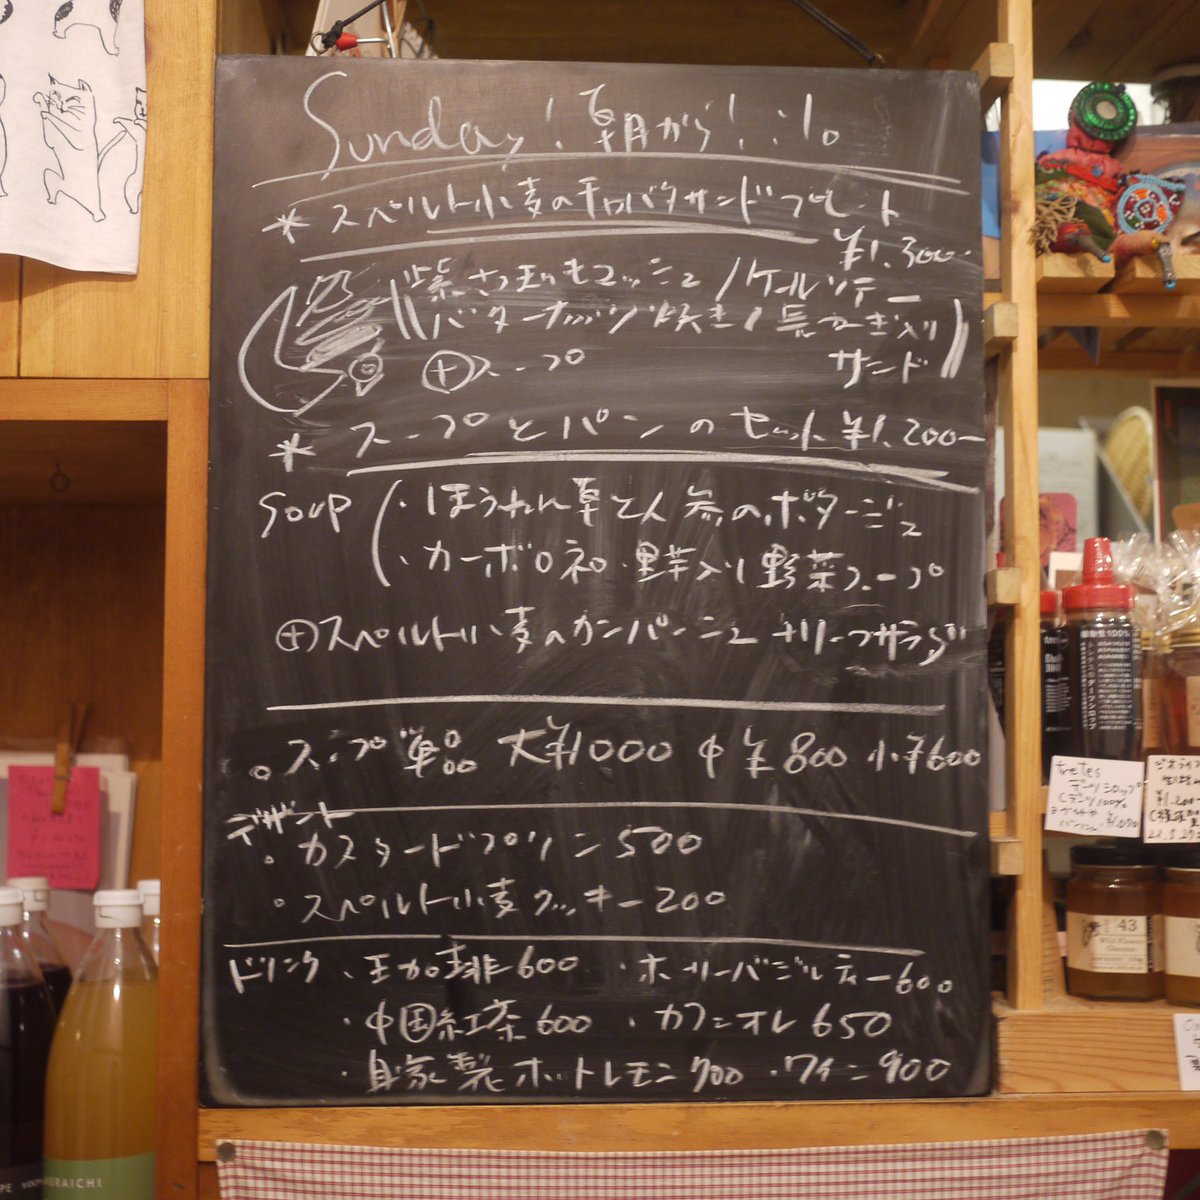 Sunday! 朝から!
* スペルト小麦のチロパタサンドプレート
¥1.300-
紫さつまいもマッシュ / ケールソテー
バターナッツ焼き / 長ねぎ入り
サンド
⊕スープ
* スープとパンのセット ¥1.200-
soup
・ほうれん草と人参のポタージュ
・カーボロネロ・里芋入り野菜スープ
⊕スペルト小麦のカンパーニュ グリーンサラダ
。スープ単品 大¥1000 中¥800 小¥600
デザート
。カスタードプリン 500
。スペルト小麦クッキー 200
ドリンク ・珈琲 600 ・ホーリーバジルティー 600
・中国紅茶 600 ・カフェオレ 650
・自家製ホットレモン 700 ・ワイン 900
tretes
デーツシロップ
43
Wild Flower